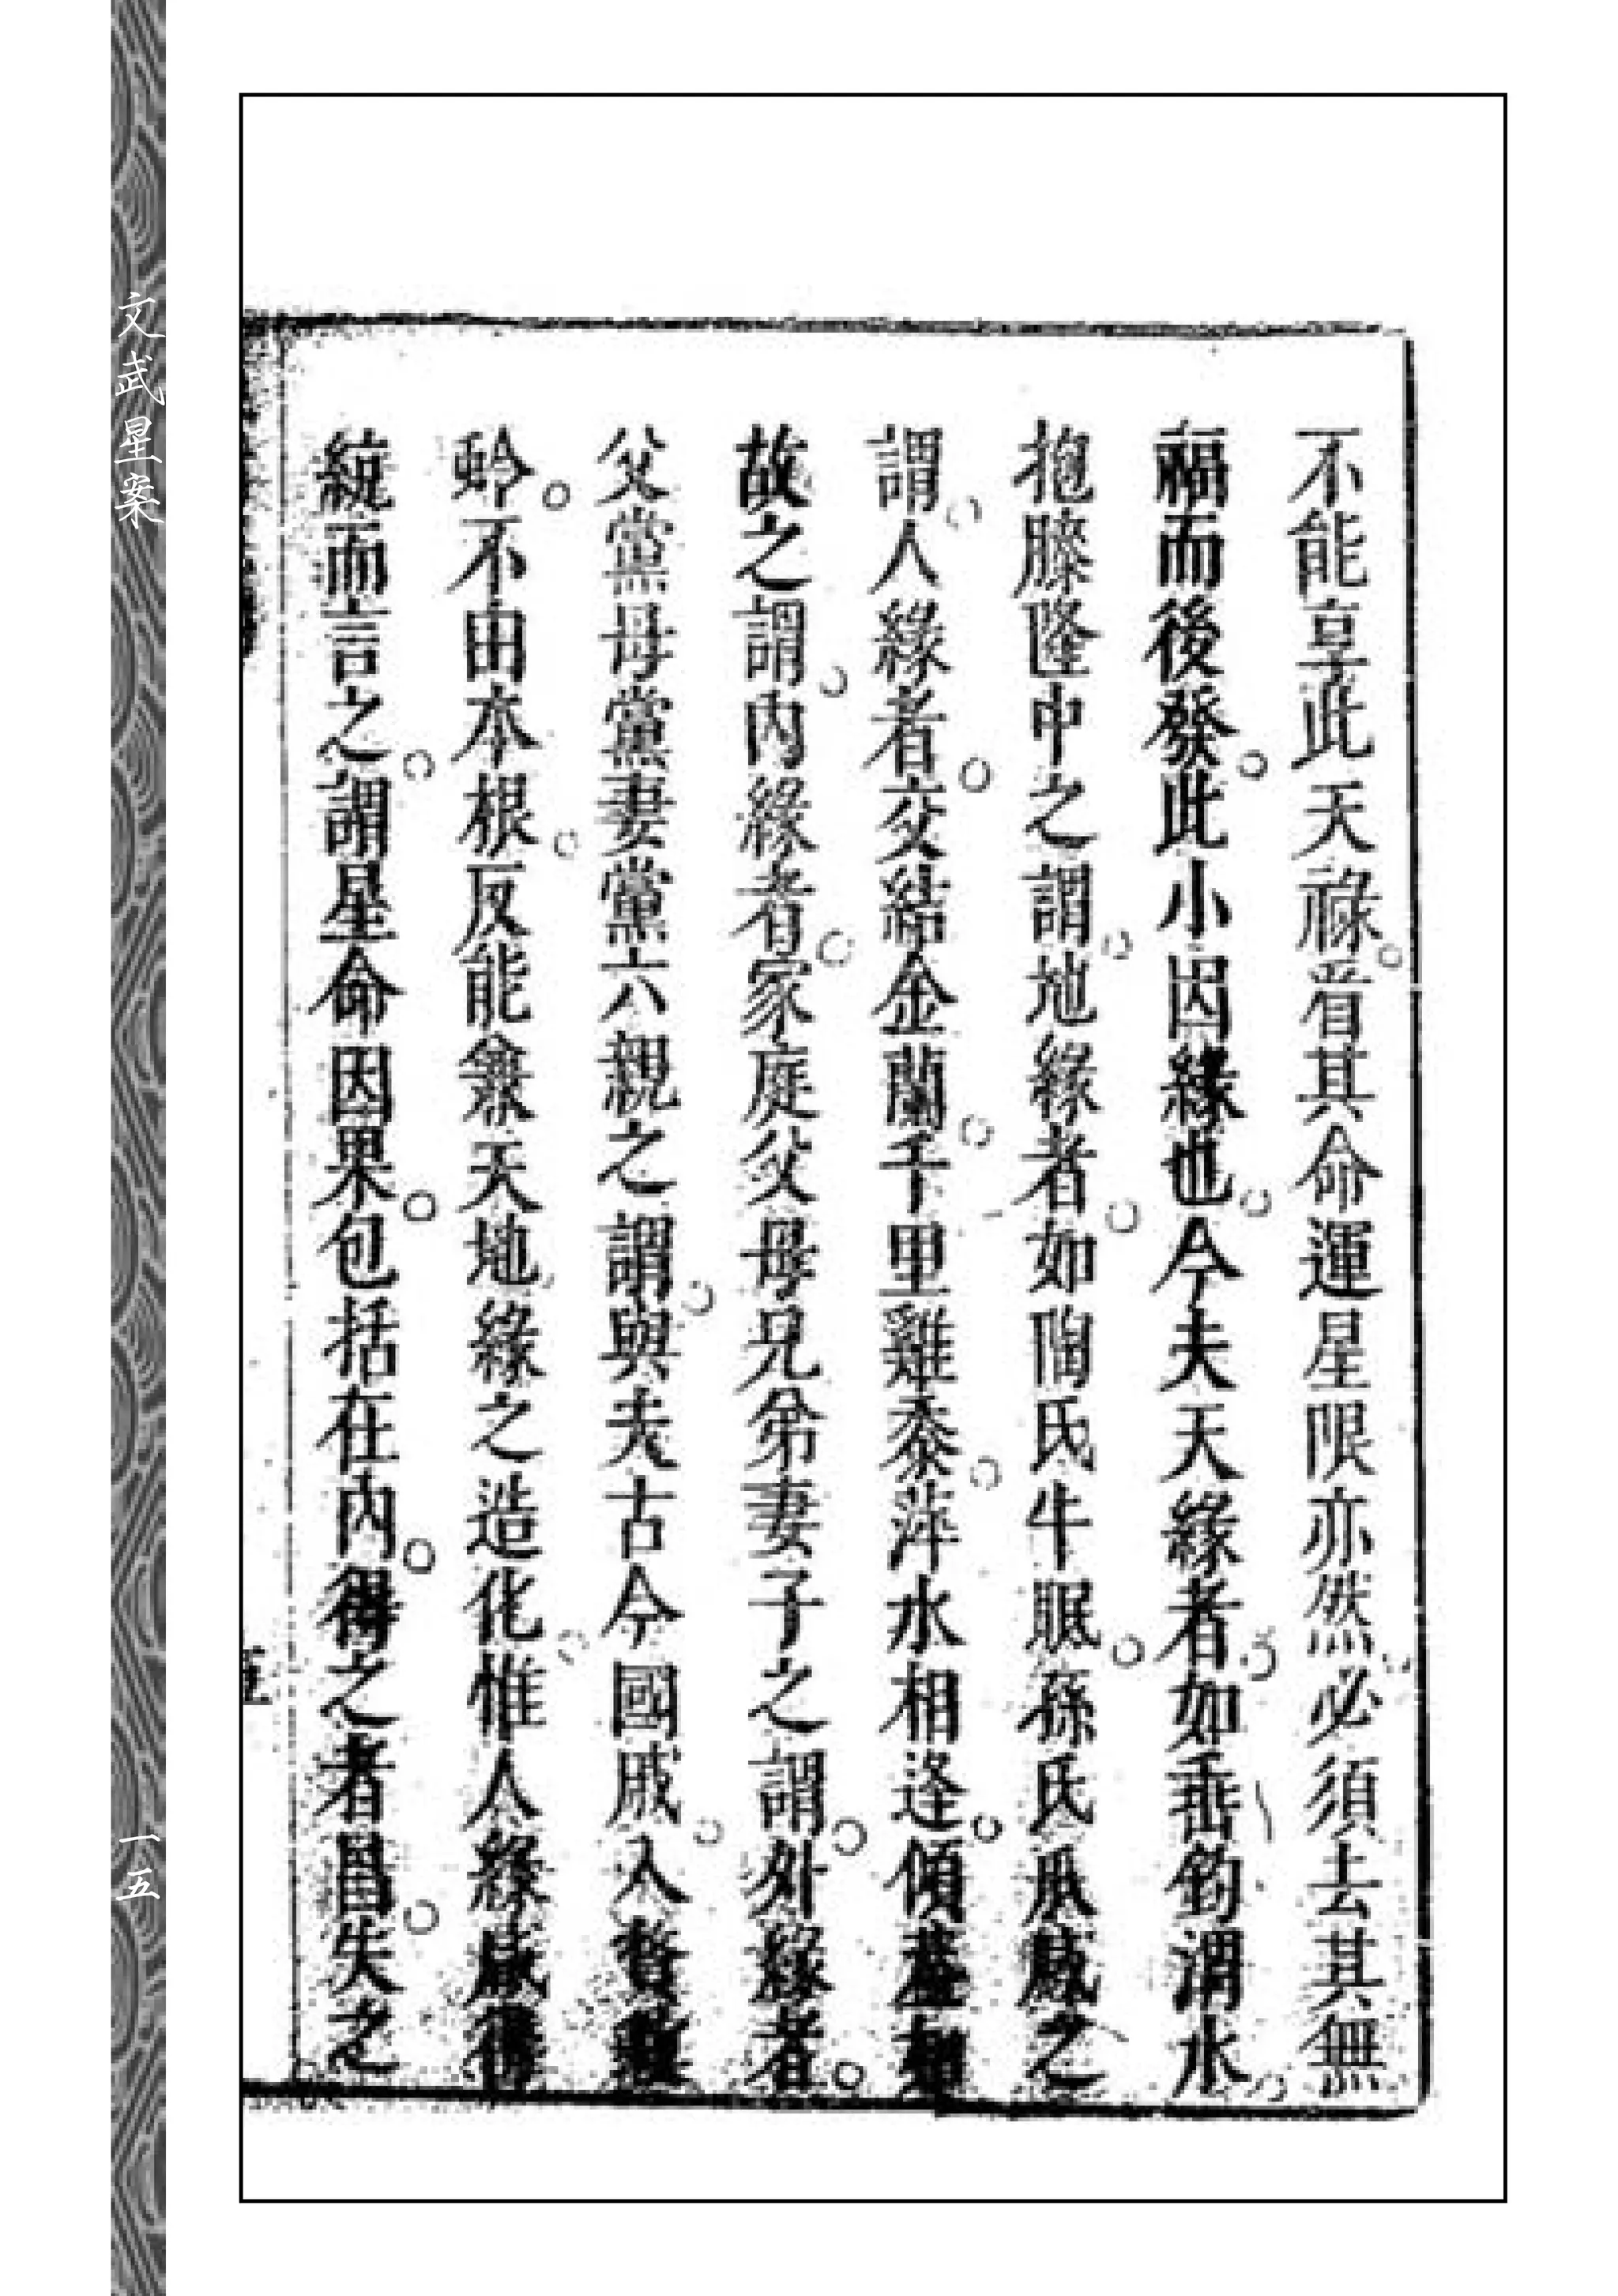 不能享此天祿。看其命運星限亦然。必須去其無
福而後發。此小因緣也。今夫天緣者。如垂釣渭水。
抱膝隆中之謂。地緣者。如陶氏牛眠。孫氏瓜感之
謂。人緣者。交結金蘭。千里雞黍。萍水相逢。傾蓋如
故之謂。內緣者。家庭父母兄弟妻子之謂。外緣者。
父黨母黨妻黨六親之謂。與夫古今國戚。入贅
蛉。不由本根。反能兼天地緣之造化。惟人緣
統而言之。謂星命因果。包括在內。得之者昌。失之
文武星案
一五